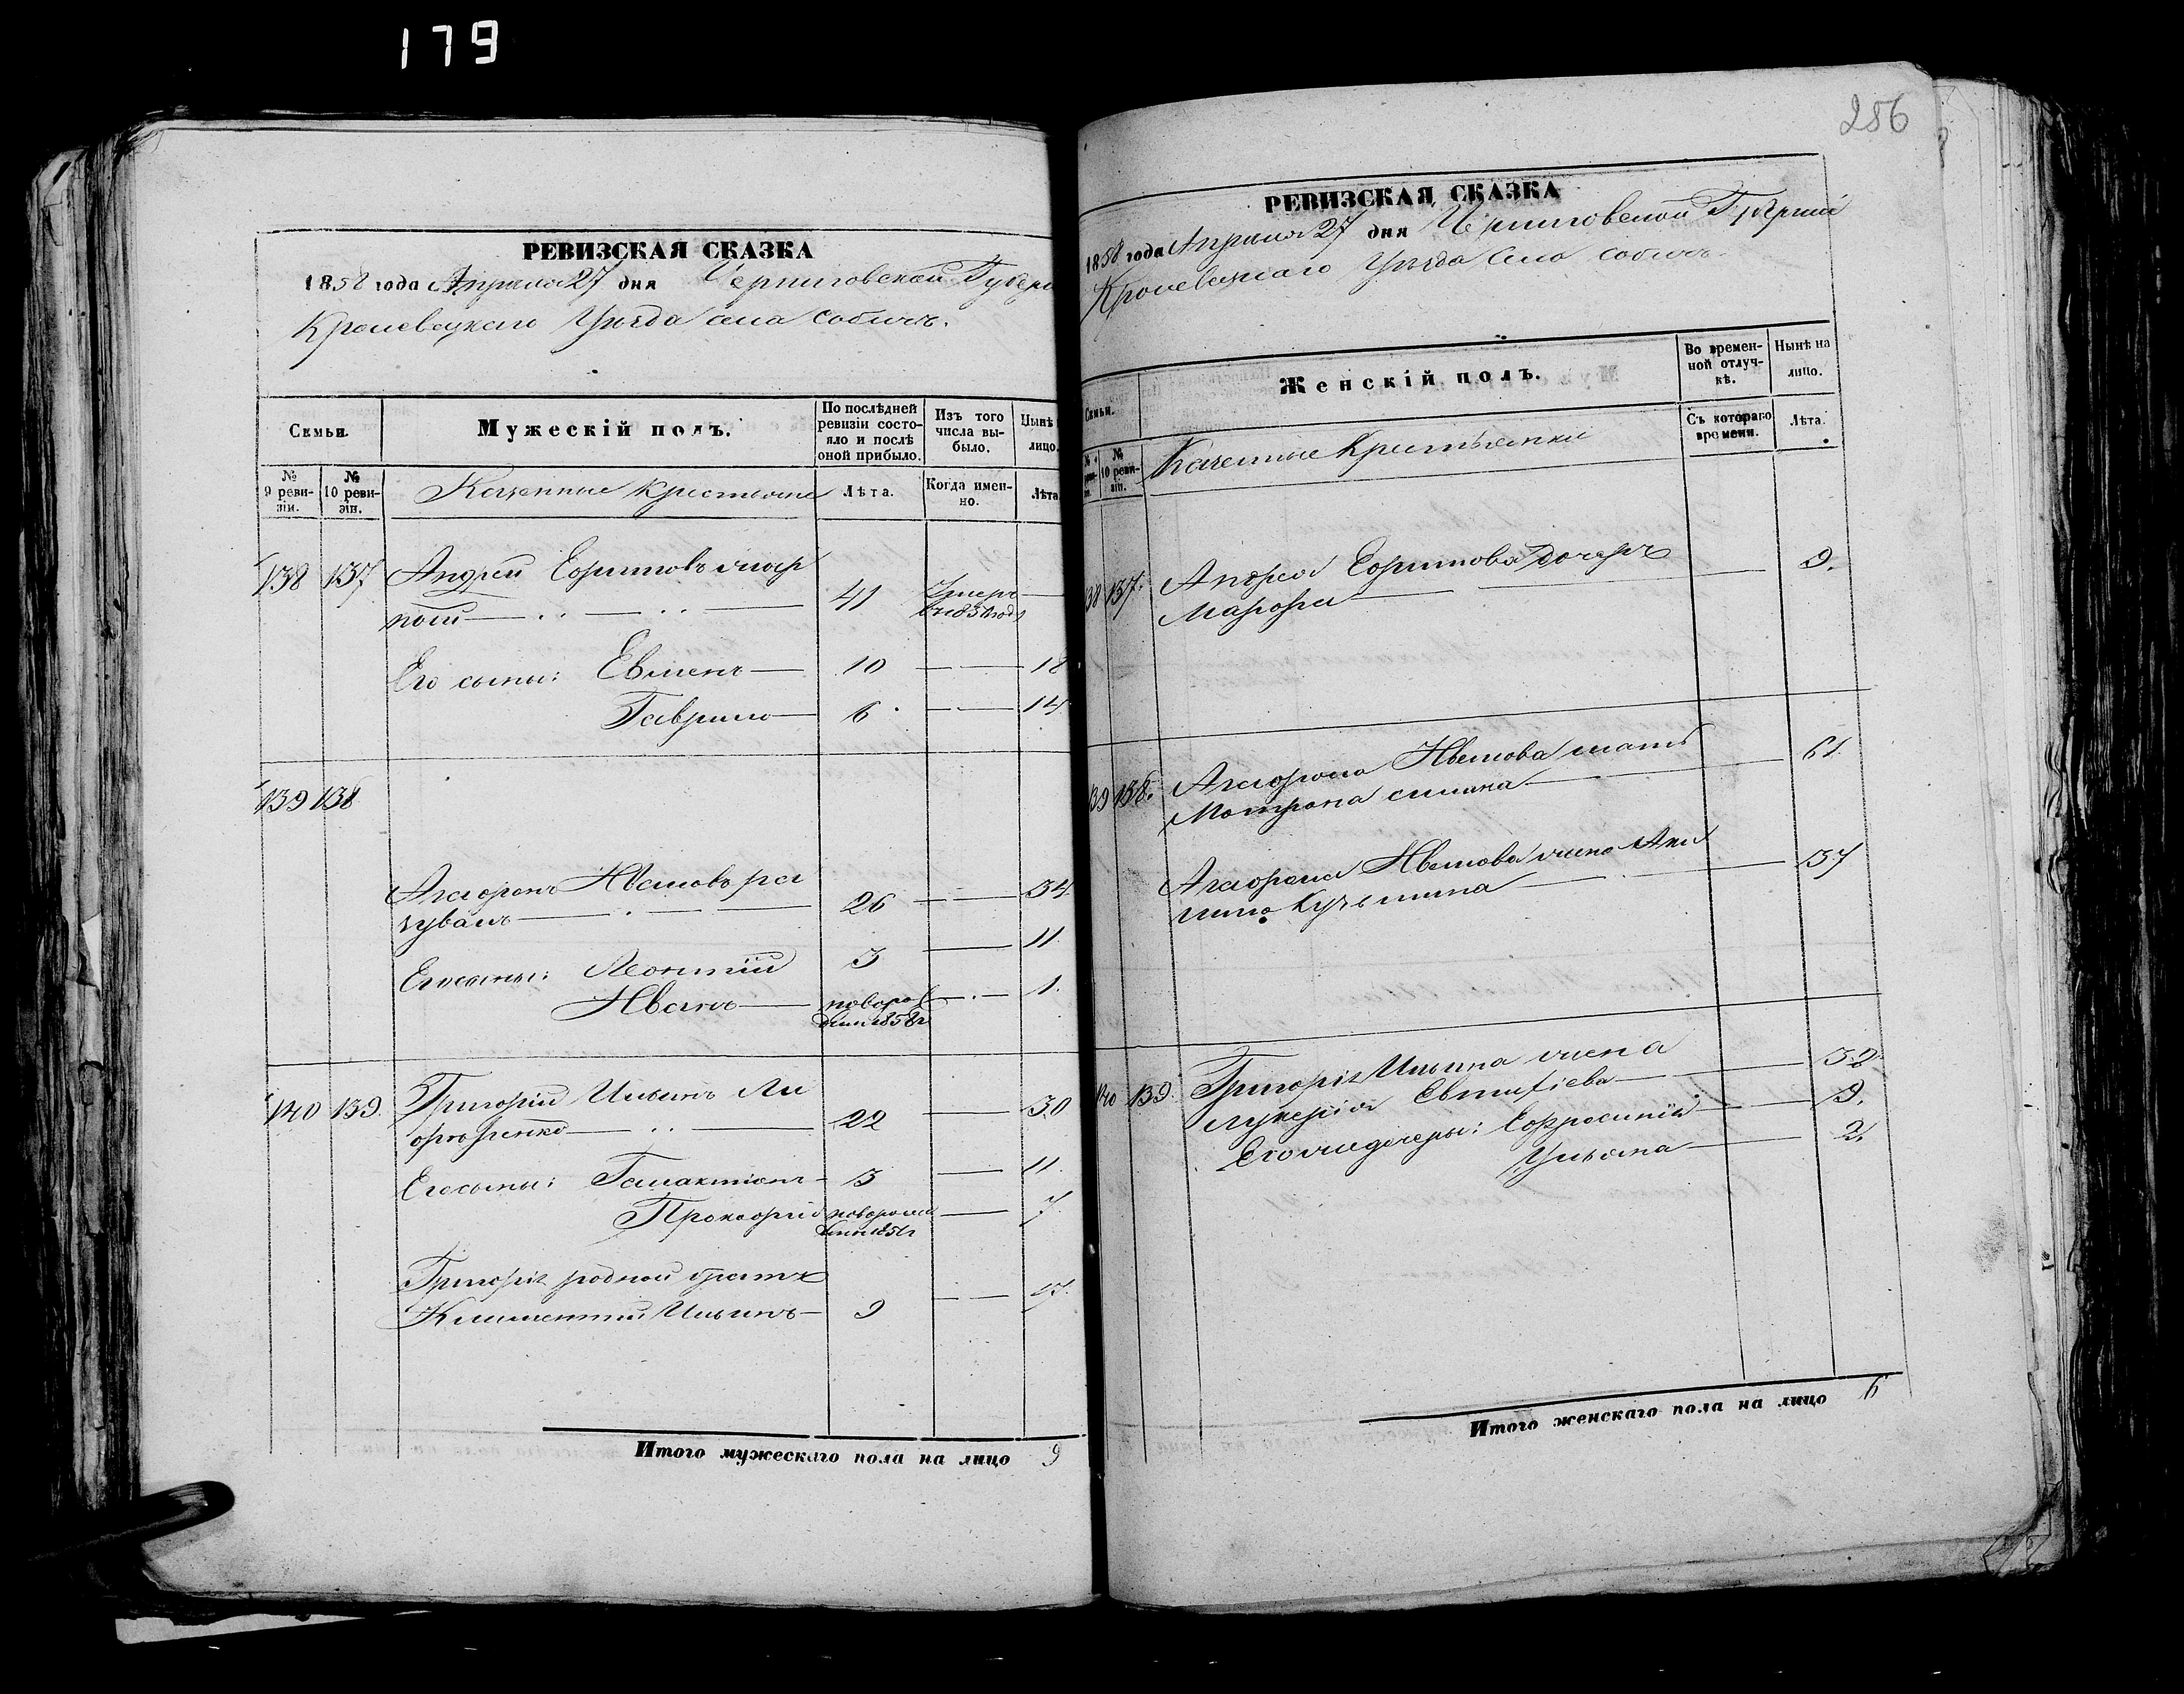 179
РЕВИЗСКАЯ СКАЗКА
1858 года Апреля 27 дня Черниговской Губерн
Кролевецкаго Уезда села Собичъ.
Семьи.
Мужескій полъ.
По послѣдней ревизіи состояло и послѣ оной прибыло.
Изъ того числа выбыло.
Нынѣ лицо.
№ 9 ревизіи.
№ 10 ревизіи.
Казенные крестьяне
Лѣта.
Когда именно.
Лѣта
138 137 Андрей Ефимовъ
41 Умеръ
Его сыны: Евменъ 10 18
Гаврило 6 14
139 138
Иванова
26 34
Его сыны: Леонтій 3 11
Иванъ новорож 1
1858
140 139 Григорій Ильинъ Ли
22 30
Его сыны: Галактіонъ 3 11
Прокофій 7
Григорія родной братъ
Климентій Ильинъ 9 17
Итого мужескаго пола на лицо 9
286
РЕВИЗСКАЯ СКАЗКА
1858 года Апреля 27 дня Черниговской Губерніи
Кролевецкаго Уезда села Собичъ
Семьи.
Женскій полъ.
Во временной отлучкѣ.
Нынѣ на лицо.
№ 10 ревизіи.
Казенные Крестьянки
Съ котораго времени.
Лѣта.
38 137. Андрея Ефимова дочерь
Марфа 9.
39 138. Иванова мать
Мотрона 61.
Иванова жена Аки
лина Кузьмина 37
140 139. Григорія Ильина жена
Лукерія Евтифіева 32
Его же дочеры: Ефросинія 9.
Ульяна 2.
Итого женскаго пола на лицо 6